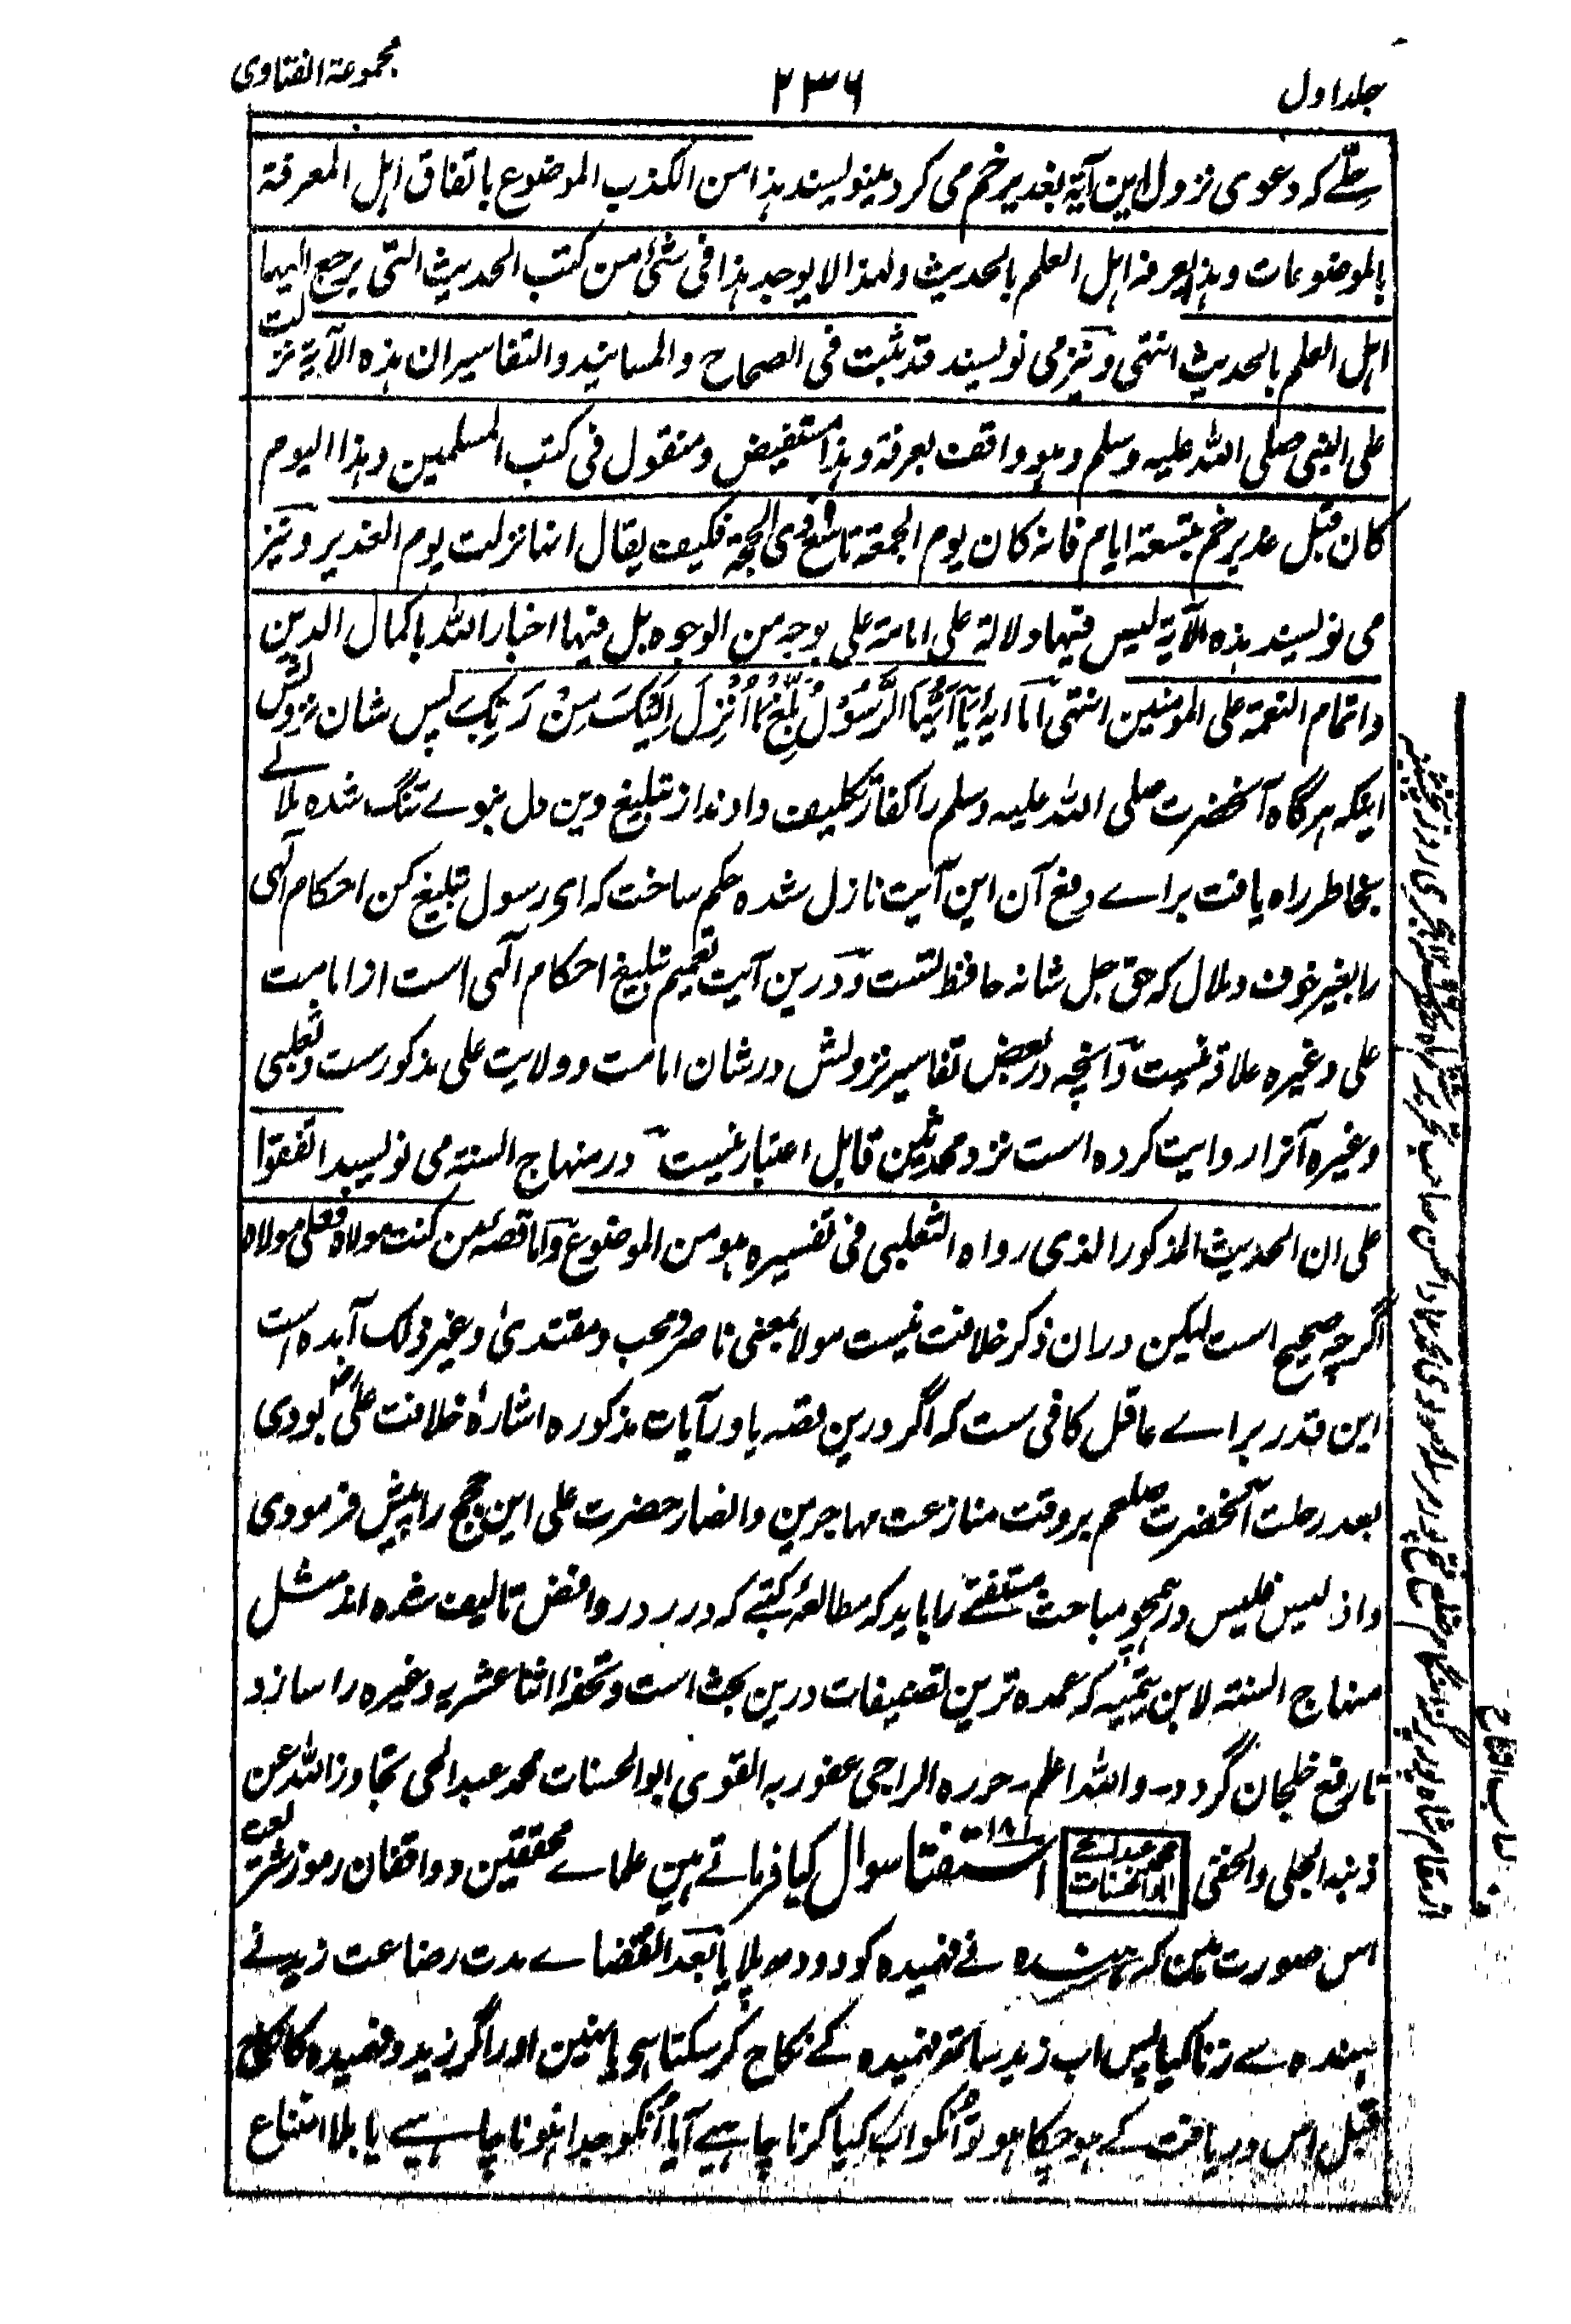 جلد اول
۲۳۶
مجموعۃ الفتاوی
علی کہ دعوی نزول این آیۃ بغدیر خم می کرد مینویسند ہذا من الکذب الموضوع باتفاق اہل المعرفۃ
بالموضوعات وہذا یعرفہ اہل العلم بالحدیث ولہذا لا یوجد ہذا فی شئ من کتب الحدیث التی یرجع الیہا
اہل العلم بالحدیث انتہی ونیز می نویسند قد ثبت فی الصحاح والمسانید والتفاسیر ان ہذہ الآیۃ نزلت
علی النبی صلی اللہ علیہ وسلم وہو واقف بعرفۃ وہذا مستفیض ومنقول فی کتب المسلمین وہذا الیوم
کان قبل غدیر خم بتسعۃ ایام فانہ کان یوم الجمعۃ تاسع ذی الحجۃ فکیف یقال انہا نزلت یوم الغدیر ونیز
می نویسند ہذہ الآیۃ لیس فیہا دلالۃ علی امامۃ علی بوجہ من الوجوہ بل فیہا اخبار اللہ باکمال الدین
واتمام النعمۃ علی المومنین انتہی اما آیہ یَا اَیُّہَا الرَّسُوۡلُ بَلِّغۡ مَا اُنۡزِلَ اِلَیۡکَ مِنۡ رَبِّکَ پس شان نزولش
اینکہ ہرگاہ آنحضرت صلی اللہ علیہ وسلم را کفار تکلیف دادند از تبلیغ دین دل نبوے تنگ شدہ ملالے
بخاطر راہ یافت براے دفع آن این آیت نازل شدہ حکم ساخت کہ ای رسول تبلیغ کن احکام الٰہی
را بغیر خوف وملال کہ حق جل شانہ حافظ تست ودرین آیت تعمیم تبلیغ احکام الٰہی است از امامت
علی وغیرہ علاقہ نیست وآنچہ در بعض تفاسیر نزولش در شان امامت وولایت علی مذکورست وثعلبی
وغیرہ آنرا روایت کردہ است نزد محدثین قابل اعتبار نیست در منہاج السنہ می نویسد اتفقوا
علی ان الحدیث المذکور الذی رواہ الثعلبی فی تفسیرہ ہو من الموضوع واما قصۂ من کنت مولاہ فعلی مولاہ
اگرچہ صحیح است لیکن دران ذکر خلافت نیست مولا بمعنی ناصر ومحب ومقتدیٰ وغیر ذلک آمدہ است
این قدر براے عاقل کافی ست کہ اگر درین قصہ یا در آیات مذکورہ اشارۂ خلافت علیؓ بودی
بعد رحلت آنحضرت صلعم بروقت منازعت مہاجرین وانصار حضرت علی این حجج را پیش فرمودی
واذ لیس فلیس در ہمچو مباحث مستفتے را باید کہ مطالعۂ کتبے کہ در رد روافض تالیف شدہ اند مثل
منہاج السنۃ لابن تیمیہ کہ عمدہ ترین تصنیفات درین بحث است وتحفۂ اثنا عشریہ وغیرہ را سازد
تا رفع خلجان گردد۔ واللہ اعلم۔ حررہ الراجی عفو ربہ القوی ابوالحسنات محمد عبدالحی تجاوز اللہ عن
ذنبہ الجلی والخفی محمد عبدالحی ابوالحسنات استفتا ۱۸۱ سوال کیا فرماتے ہین علماے محققین وواقفان رموز شریعت
اس صورت مین کہ ہندہ نے فہمیدہ کو دودھ پلایا بعد انقضاے مدت رضاعت زید نے
ہندہ سے زنا کیا پس اب زید ساتھ فہمیدہ کے نکاح کرسکتا ہی یا نہین اور اگر زید وفہمیدہ کا نکاح
قبل اس دریافت کے ہوچکا ہو تو اُنکو اب کیا کرنا چاہیے آیا اُنکو جدا ہونا چاہیے یا بلا امتناع